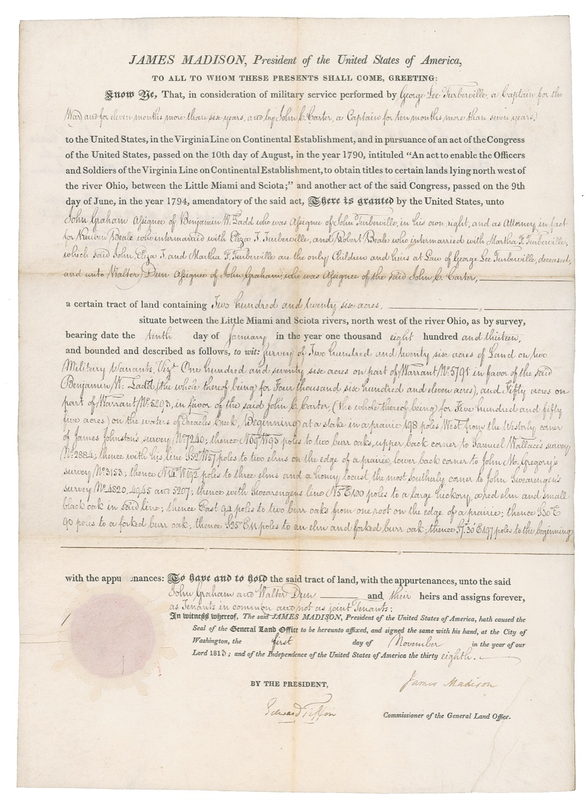 JAMES MADISON, President of the United States of America,
TO ALL TO WHOM THESE PRESENTS SHALL COME, GREETING:
Know Ye, That, in consideration of military service performed by George Lee Turberville, a Captain for the
War and for eleven months more than six years, and by John C. Carter, a Captain for ten months more than seven years,
to the United States, in the Virginia Line on Continental Establishment, and in pursuance of an act of the Congress
of the United States, passed on the 10th day of August, in the year 1790, intituled "An act to enable the Officers
and Soldiers of the Virginia Line on Continental Establishment, to obtain titles to certain lands lying north west of
the river Ohio, between the Little Miami and Sciota;" and another act of the said Congress, passed on the 9th
day of June, in the year 1794, amendatory of the said act, There is granted by the United States, unto
John Graham Assignee of Benjamin W. Ladd who was Assignee of John Turberville, in his own right, and as Attorney in fact
for Reuben Beale who intermarried with Eliza T. Turberville, and Robert Beale who intermarried with Martha F. Turberville,
which said John, Eliza T. and Martha F. Turberville are the only Children and heirs at Law of George Lee Turberville, deceased,
and unto Walter Dun Assignee of John Graham who was Assignee of the said John C. Carter,
a certain tract of land containing Two hundred and twenty six acres
situate between the Little Miami and Sciota rivers, north west of the river Ohio, as by survey,
bearing date the tenth day of January in the year one thousand eight hundred and thirteen,
and bounded and described as follows, to wit: Survey of Two hundred and twenty six acres of Land on two
Military Warrants, Viz. One hundred and seventy six acres on part of Warrant No. 5791 in favor of the said
Benjamin W. Ladd, (the whole thereof being for Four thousand six hundred and eleven acres), and Fifty acres on
part of Warrant No. 5293, in favor of the said John C. Carter, (the whole thereof being) for Five hundred and fifty
two acres) on the waters of Creek, Beginning at a stake in a prairie 198 poles West from the Westerly corner
of James Johnston's survey No. 7240; thence poles to two bur oaks, upper back corner to Samuel Wallace's survey
No. 2884; thence with his line poles to two elms on the edge of a prairie, lower back corner to John McGregory's
survey No. 3153; thence poles to three elms and a honey locust the most southerly corner to John
survey No. 4820, 4945 and 5207; thence with line N75 E100 poles to a large hickory, a red elm and small
black oak in said line; thence East 92 poles to two burr oaks from one root on the edge of a prairie; thence E
90 poles to a forked burr oak; thence poles to an elm and forked burr oak; thence poles to the beginning
with the appu nances: To have and to hold the said tract of land, with the appurtenances, unto the said
John Graham and Walter Dun and their heirs and assigns forever,
as Tenants in common and not as joint Tenants:
In witness whereof, The said JAMES MADISON, President of the United States of America, hath caused the
Seal of the General Land Office to be hereunto affixed, and signed the same with his hand, at the City of
Washington, the first day of November in the year of our
Lord 1813; and of the Independence of the United States of America the thirty eighth.
James Madison
BY THE PRESIDENT,
Edward Tiffin
Commissioner of the General Land Office.